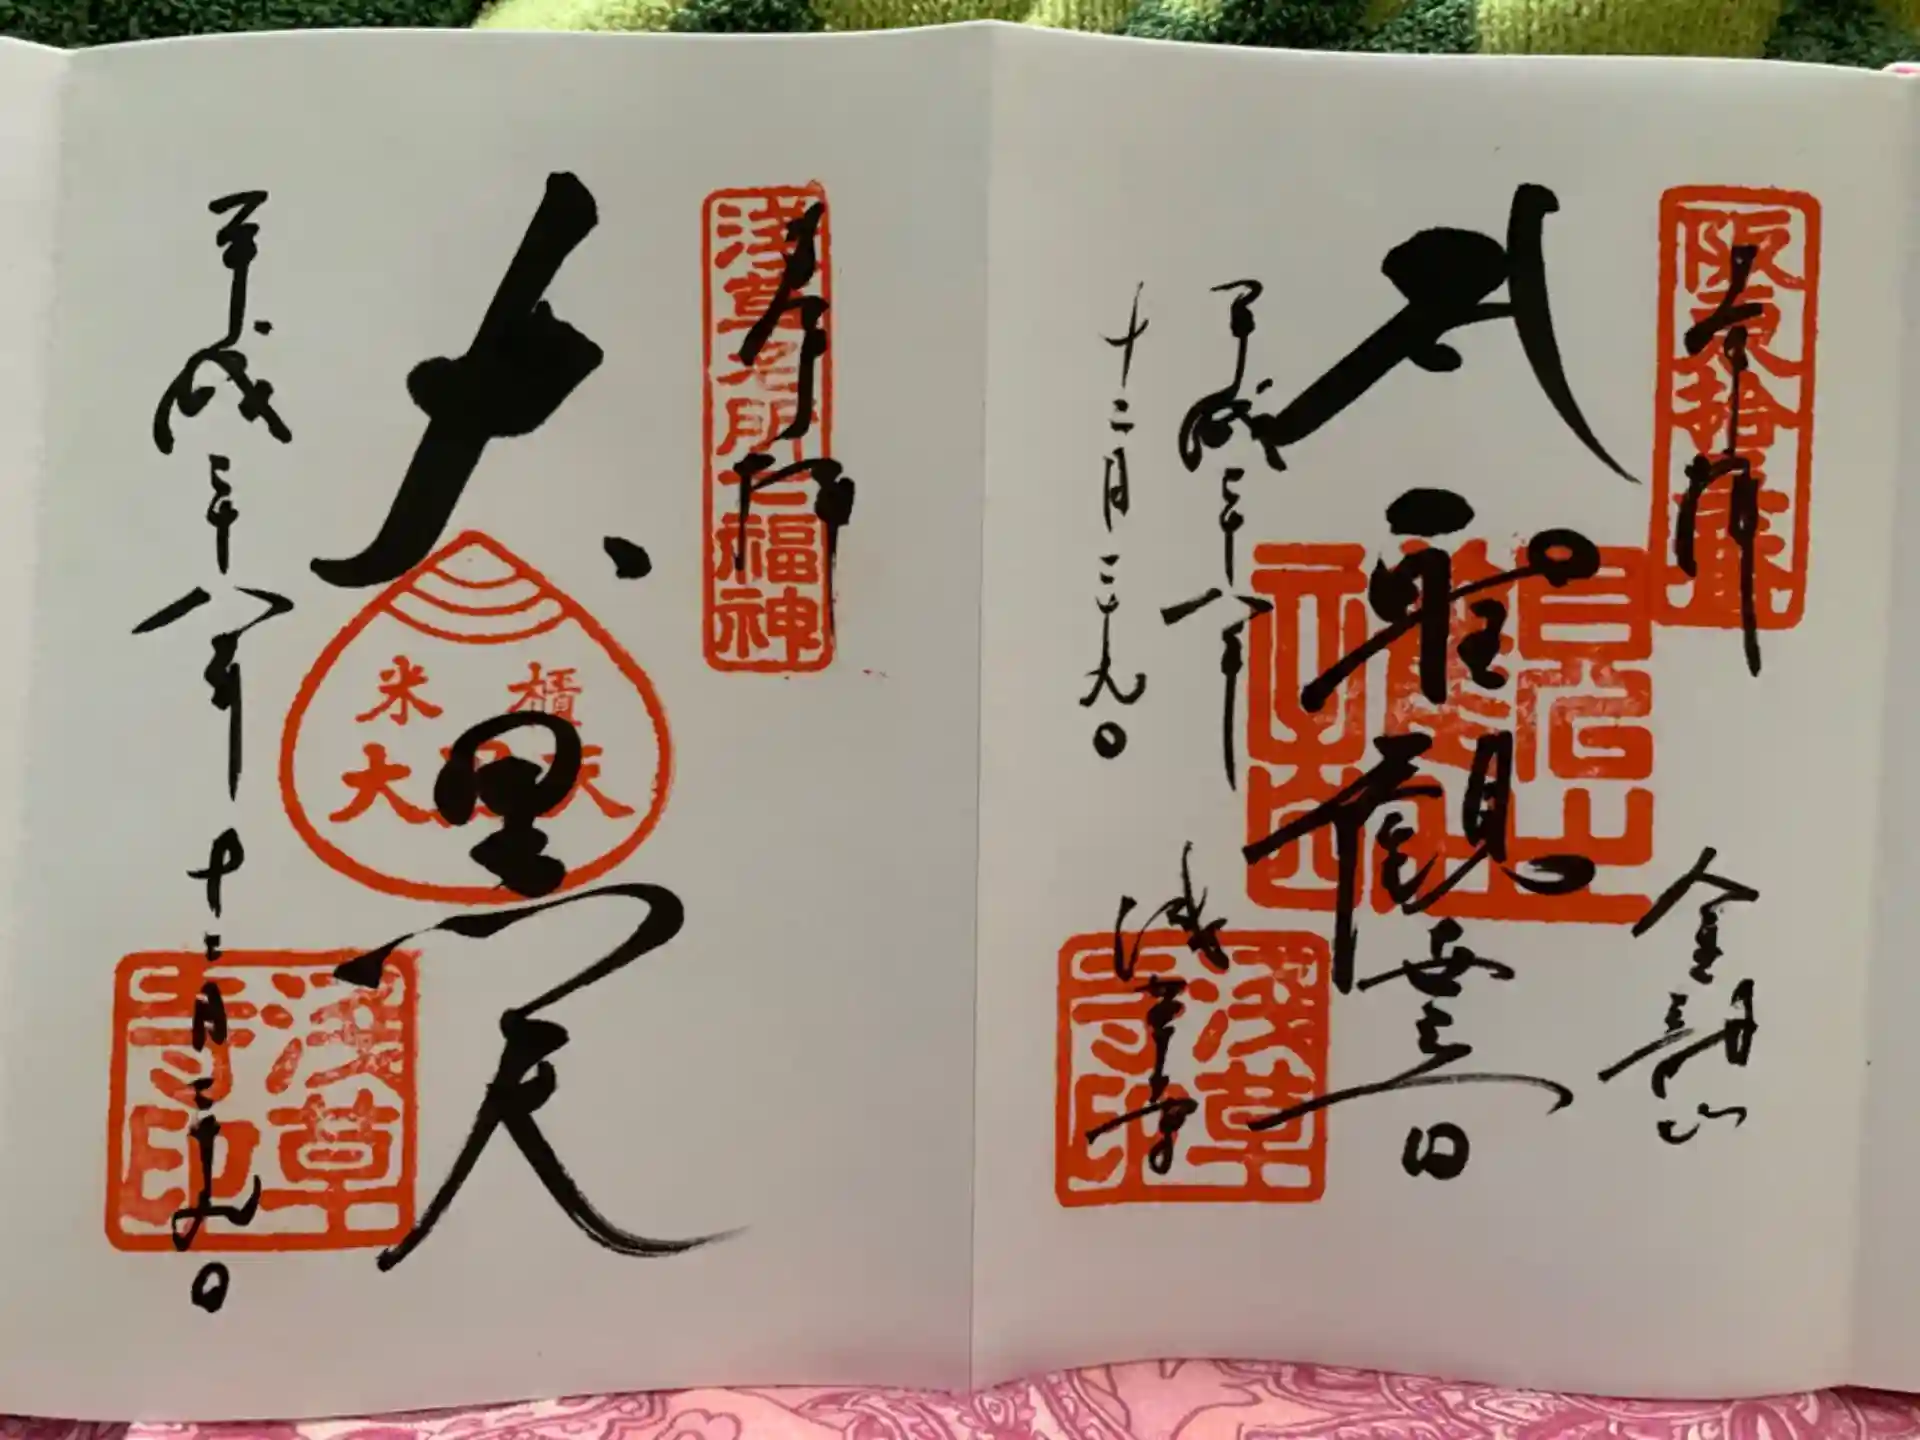 奉拝
阪東拾三番
聖観世音
金龍山
淺草寺
平成二十八年
十二月二十九日
淺草寺印
奉拝
淺草名所七福神
大黒天
米櫃
大黒天
平成二十八年十二月二十九日
淺草寺印